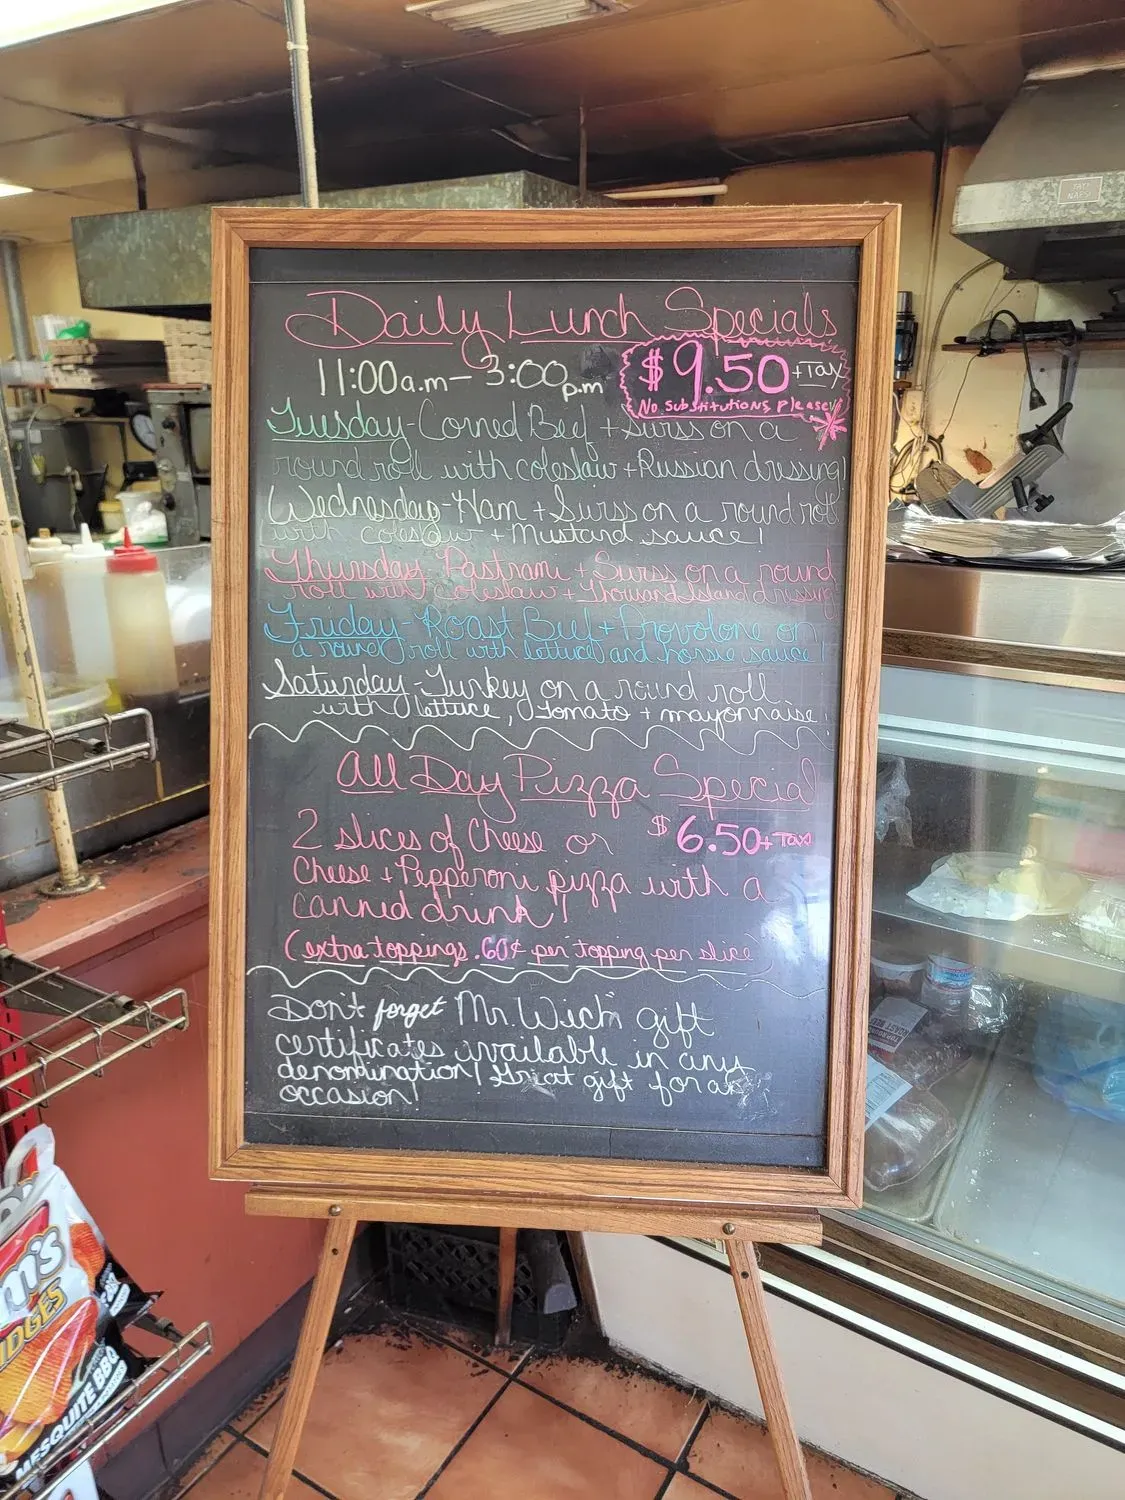 Daily Lunch Specials
11:00a.m - 3:00p.m
$9.50 +Tax
No substitutions please!
Tuesday-Corned Beef + Swiss on a
round roll with coleslaw + Russian dressing!
Wednesday-Ham + Swiss on a round roll
with coleslaw + Mustard sauce!
Thursday-Pastrami + Swiss on a round
roll with coleslaw + Thousand Island dressing
Friday-Roast Beef + Provolone on
a round roll with lettuce and horsie sauce!
Saturday-Turkey on a round roll
with lettuce, tomato + mayonnaise!
All Day Pizza Special
2 slices of Cheese or $6.50 + Tax
Cheese + Pepperoni pizza with a
canned drink!
(extra toppings .60¢ per topping per slice)
Don't forget "Mr. Wich" gift
certificates available in any
denomination! Great gift for an
occasion!
MESQUITE BBQ
ROAST BEEF